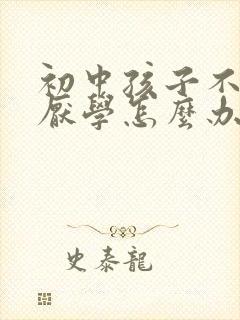 初中孩子不
厭學怎麼办
史泰龍